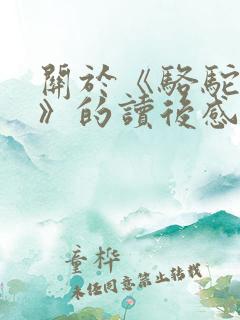 關於《駱駝
》的讀後感
童樺
未經同意禁止轉載